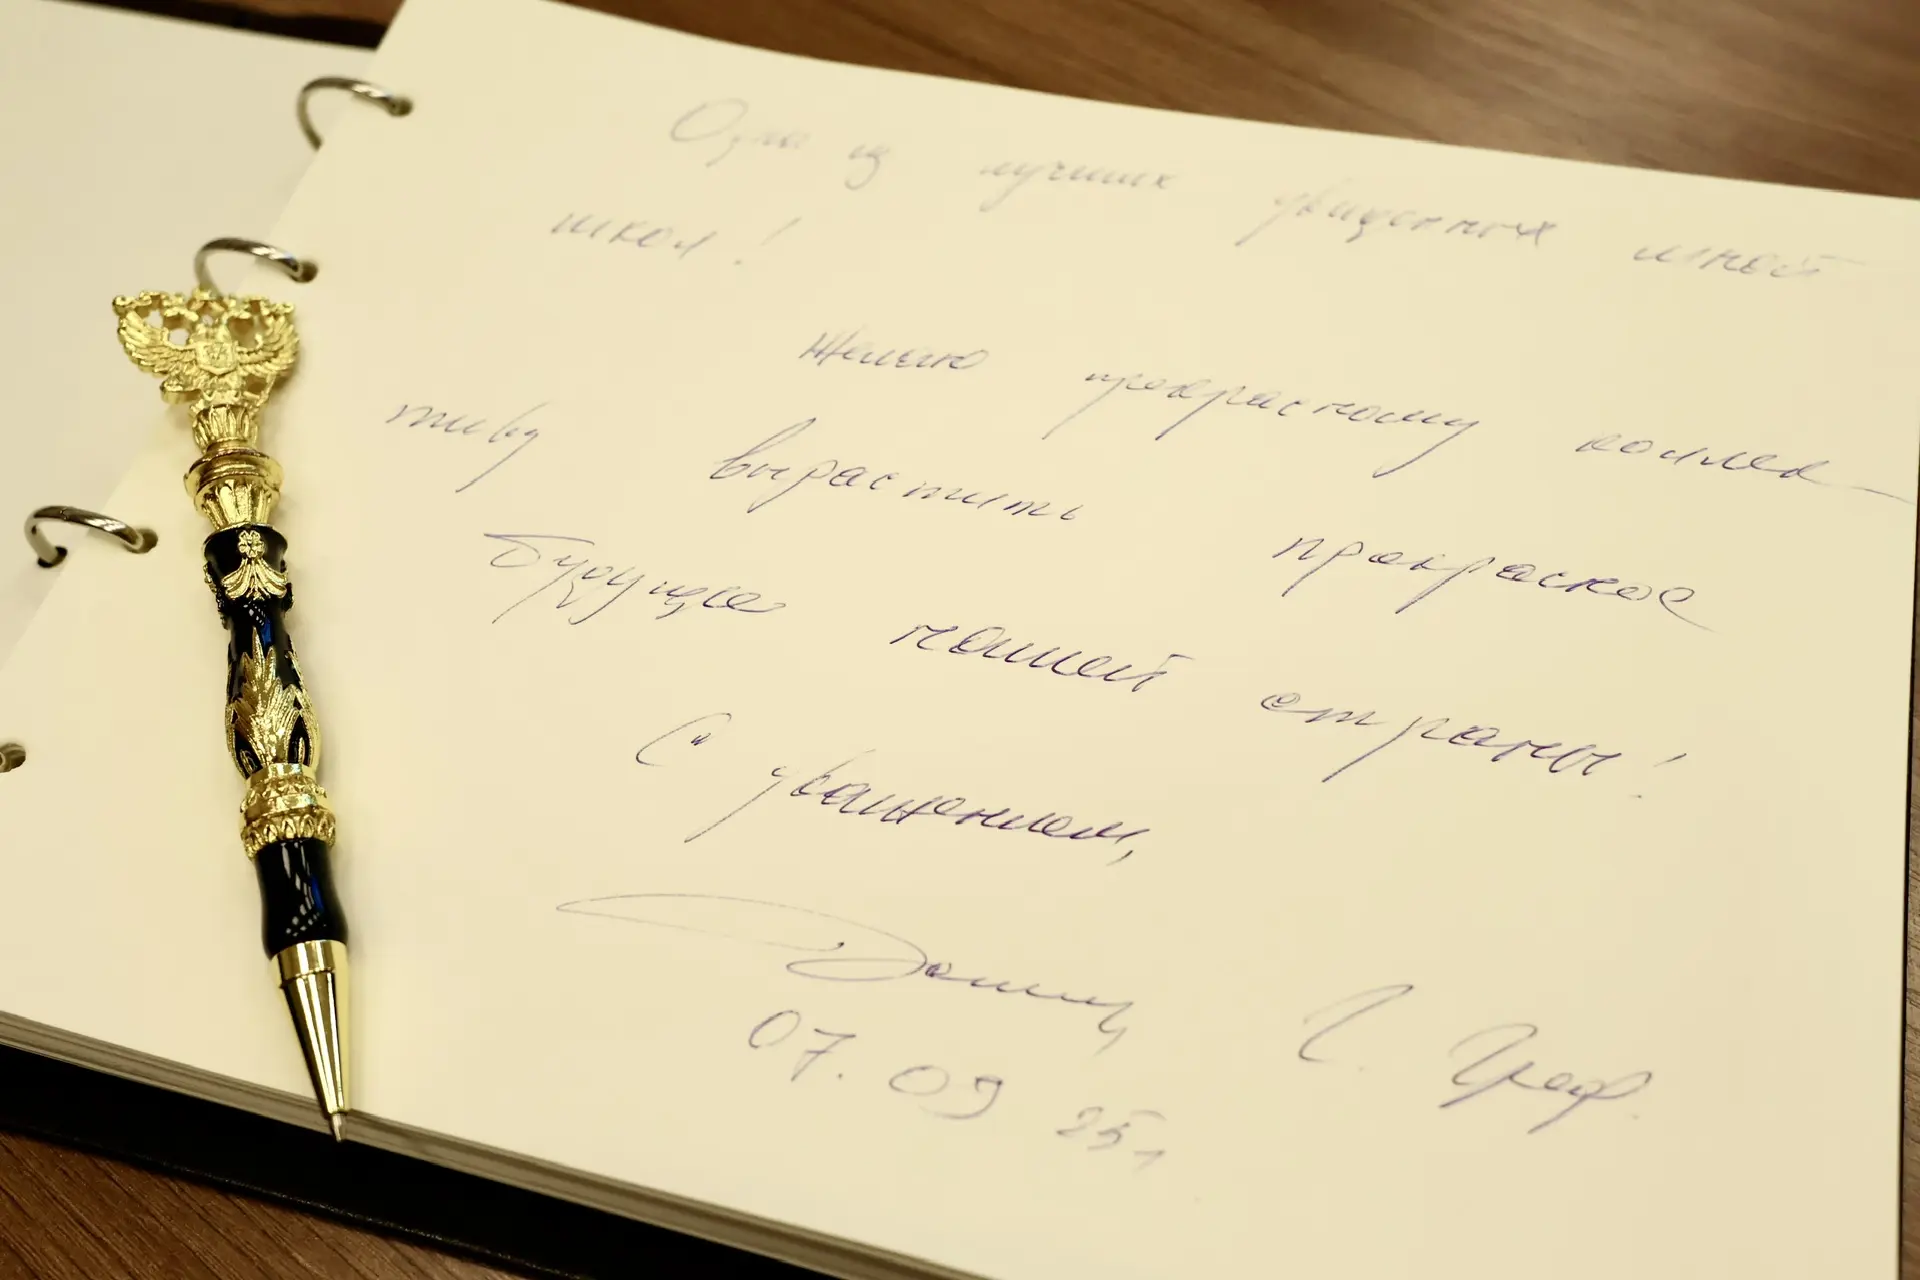 Одна из лучших увиденных мной
школ!
Желаю прекрасному коллек-
тиву вырастить прекрасное
будущее нашей страны!
С уважением,
Г. Греф.
07.09 25г